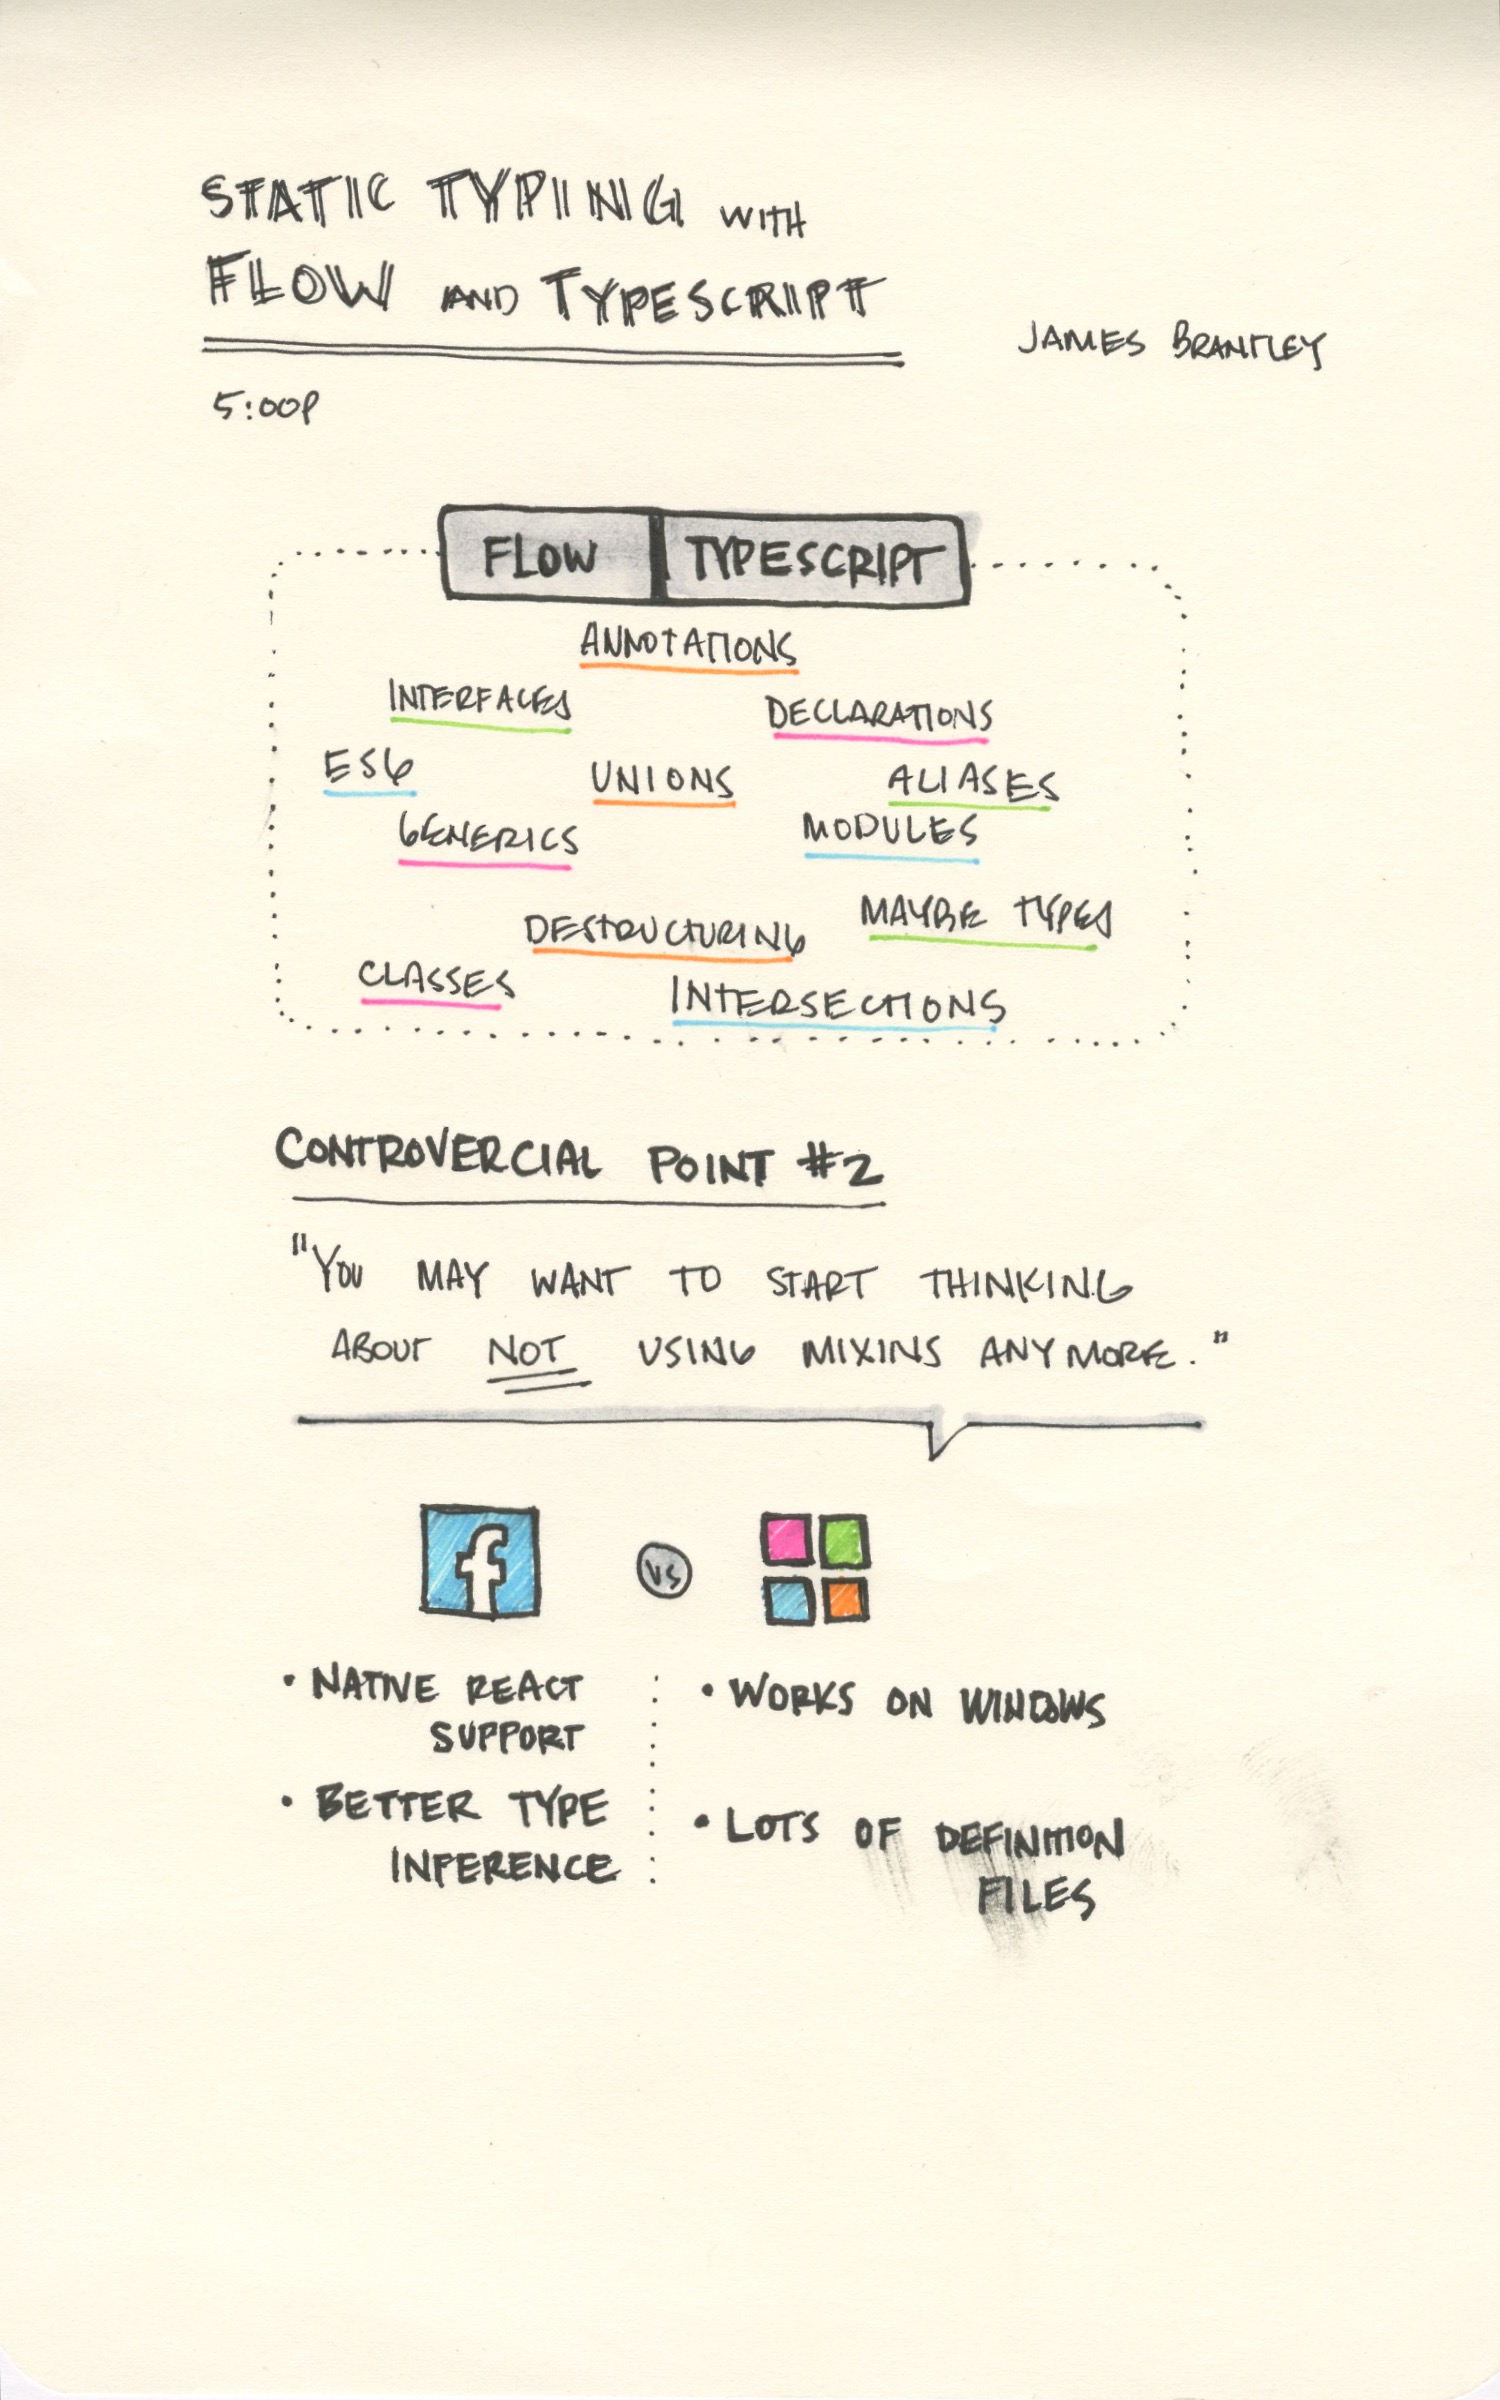 STATIC TYPING WITH
FLOW AND TYPESCRIPT
JAMES BRANTLEY
5:00P
FLOW TYPESCRIPT
ANNOTATIONS
INTERFACES DECLARATIONS
ES6 UNIONS ALIASES
GENERICS MODULES
DESTRUCTURING MAYBE TYPES
CLASSES INTERSECTIONS
CONTROVERCIAL POINT #2
"YOU MAY WANT TO START THINKING
ABOUT NOT USING MIXINS ANYMORE."
f VS
• NATIVE REACT
SUPPORT
• BETTER TYPE
INFERENCE
• WORKS ON WINDOWS
• LOTS OF DEFINITION
FILES